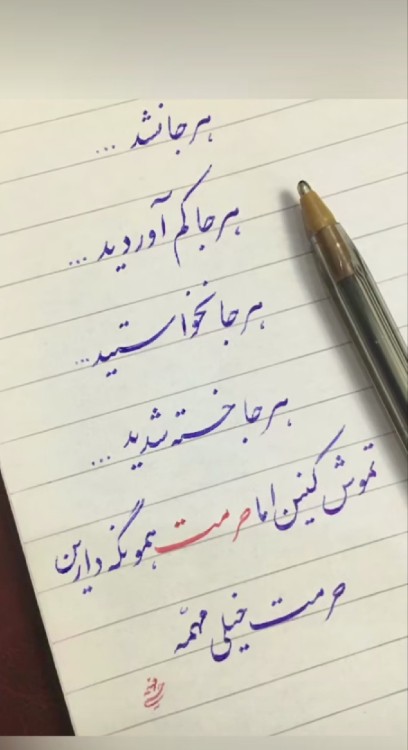 هرجا نشد ...
هرجا کم آوردید ...
هرجا نخواستید ...
هرجا خسته شدید ...
تموش کنین اما حرمت همو نگه دارین
حرمت خیلی مهمّه